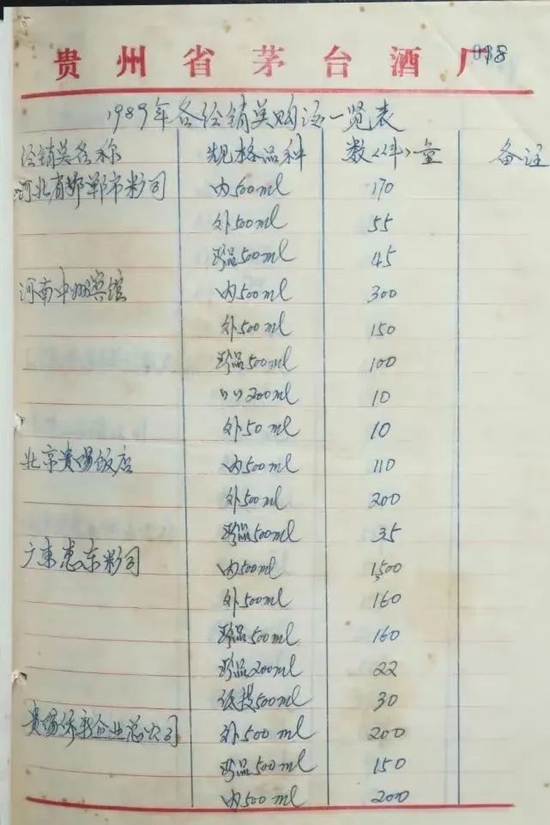 贵州省茅台酒厂
098
1989年各经销关购酒一览表
经销关名称 规格品种 数(件)量 备注
河北省邯郸市 司 内500ml 170
外500ml 55
珍品500ml 45
河南中州宾馆 内500ml 300
外500ml 150
珍品500ml 100
〃 200ml 10
外50ml 10
北京贵阳饭店 内500ml 110
外500ml 200
珍品500ml 35
广东惠东 司 内500ml 1500
外500ml 160
珍品500ml 160
珍品200ml 22
500ml 30
贵阳侨新企业总公司 外500ml 200
珍品500ml 150
内500ml 200